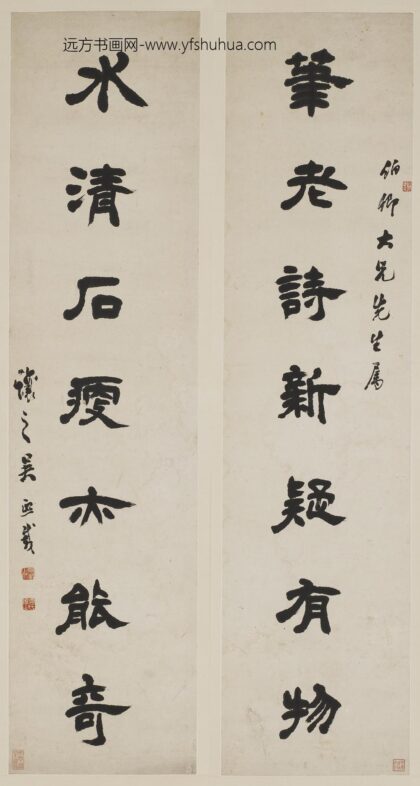 远方书画网-www.yfshuhua.com
伯卿大兄先生属
筆老詩新疑有物
水清石瘦亦能奇
攘之吳熙載